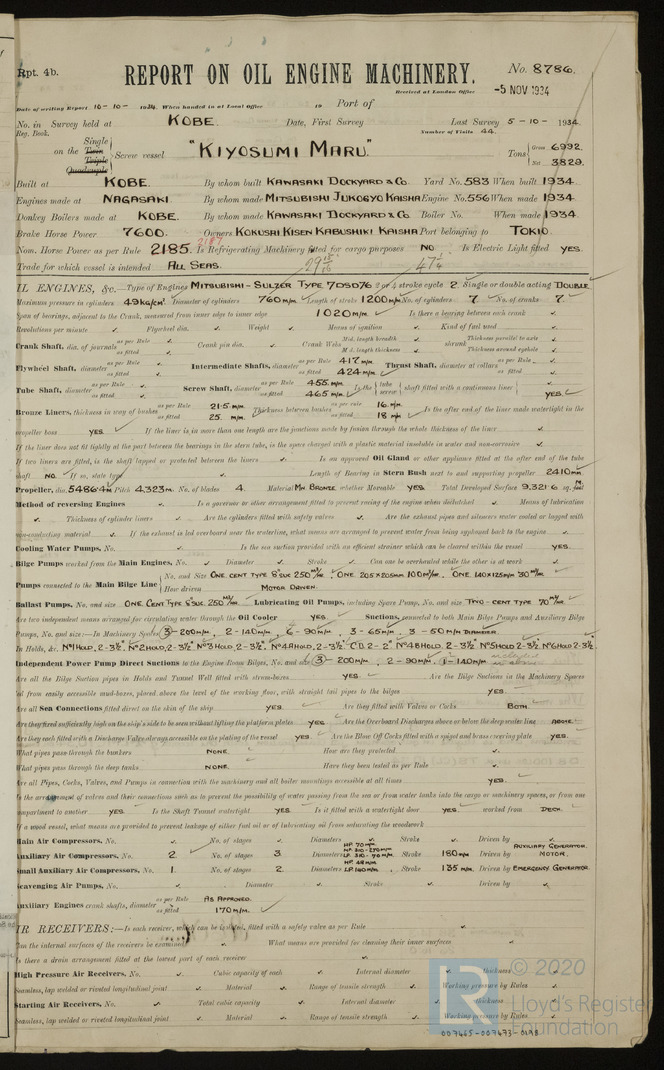 Rpt. 4b.
REPORT ON OIL ENGINE MACHINERY.
No. 8786.
Received at London Office
-5 NOV 1934
Date of writing Report 16-10- 1934. When handed in at Local Office 19 Port of
No. in Survey held at KOBE. Date, First Survey Last Survey 5-10-1934.
Reg. Book. Number of Visits 44.
Single
on the Twin Screw vessel "KIYOSUMI MARU."
Triple
Quadruple
Tons Gross 6992.
Net 3829.
Built at KOBE. By whom built KAWASAKI DOCKYARD & Co. Yard No. 583 When built 1934.
Engines made at NAGASAKI By whom made MITSUBISHI JUKOGYO KAISHA Engine No. 556 When made 1934.
Donkey Boilers made at KOBE. By whom made KAWASAKI DOCKYARD & Co. Boiler No. When made 1934.
Brake Horse Power 7600. Owners KOKUSAI KISEN KABUSHIKI KAISHA Port belonging to TOKIO.
2187
Nom. Horse Power as per Rule 2185. Is Refrigerating Machinery fitted for cargo purposes NO. Is Electric Light fitted YES.
Trade for which vessel is intended ALL SEAS.
IL ENGINES, &c. Type of Engines MITSUBISHI-SULZER TYPE 7DSD76 2 or 4 stroke cycle 2 Single or double acting DOUBLE.
Maximum pressure in cylinders 49 kg/cm². Diameter of cylinders 760 m/m. Length of stroke 1200 m/m. No. of cylinders 7. No. of cranks 7.
Span of bearings, adjacent to the Crank, measured from inner edge to inner edge 1020 m/m. Is there a bearing between each crank
Revolutions per minute Flywheel dia. Weight Means of ignition Kind of fuel used
Crank Shaft, dia. of journals as per Rule as fitted Crank pin dia. Crank Webs Mid. length breadth Mid. length thickness shrunk Thickness parallel to axis Thickness around eyehole
Flywheel Shaft, diameter as per Rule as fitted Intermediate Shafts, diameter as per Rule 417 m/m. as fitted 424 m/m. Thrust Shaft, diameter at collars as per Rule as fitted
Tube Shaft, diameter as per Rule as fitted Screw Shaft, diameter as per Rule 455 m/m. as fitted 465 m/m. Is the tube screw shaft fitted with a continuous liner YES.
Bronze Liners, thickness in way of bushes as per Rule 21.5 m/m. as fitted 25. m/m. Thickness between bushes as per Rule 16. m/m. as fitted 18 m/m. Is the after end of the liner made watertight in the
propeller boss YES. If the liner is in more than one length are the junctions made by fusion through the whole thickness of the liner
If the liner does not fit tightly at the part between the bearings in the stern tube, is the space charged with a plastic material insoluble in water and non-corrosive
If two liners are fitted, is the shaft lapped or protected between the liners Is an approved Oil Gland or other appliance fitted at the after end of the tube
shaft NO. If so, state type Length of Bearing in Stern Bush next to and supporting propeller 2410 m/m
Propeller, dia. 5486.4 m/m Pitch 4.323 m. No. of blades 4. Material Mn BRONZE whether Moveable YES. Total Developed Surface 9.3216 sq. feet
Method of reversing Engines Is a governor or other arrangement fitted to prevent racing of the engine when declutched Means of lubrication
Thickness of cylinder liners Are the cylinders fitted with safety valves Are the exhaust pipes and silencers water cooled or lagged with
non-conducting material If the exhaust is led overboard near the waterline, what means are arranged to prevent water from being syphoned back to the engine
Cooling Water Pumps, No. Is the sea suction provided with an efficient strainer which can be cleared within the vessel YES.
Bilge Pumps worked from the Main Engines, No. Diameter Stroke Can one be overhauled while the other is at work
Pumps connected to the Main Bilge Line No. and Size ONE CENT TYPE 8"SUC. 250 m³/hr., ONE 205x205 m/m 100 m³/hr., ONE 140x125 m/m 30 m³/hr.
How driven MOTOR DRIVEN.
Ballast Pumps, No. and size ONE CENT TYPE 8"SUC. 250 m³/hr Lubricating Oil Pumps, including Spare Pump, No. and size TWO-CENT TYPE 70 m³/hr.
Are two independent means arranged for circulating water through the Oil Cooler YES. Suctions, connected to both Main Bilge Pumps and Auxiliary Bilge
Pumps, No. and size:—In Machinery Spaces 3-200 m/m, 2-140 m/m, 6-90 m/m, 3-65 m/m, 3-50 m/m DIAMETER
In Holds, &c. No 1 HOLD, 2-3½", No 2 HOLD, 2-3½", No 3 HOLD, 2-3½", No 4A HOLD, 2-3½", C.D. 2-2", No 4B HOLD, 2-3½", No 5 HOLD 2-3½", No 6 HOLD 2-3½".
Independent Power Pump Direct Suctions to the Engine Room Bilges, No. and size 3-200 m/m, 2-90 m/m, 1-140 m/m. included in above
Are all the Bilge Suction pipes in Holds and Tunnel Well fitted with strum-boxes YES. Are the Bilge Suctions in the Machinery Spaces
led from easily accessible mud-boxes, placed above the level of the working floor, with straight tail pipes to the bilges YES.
Are all Sea Connections fitted direct on the skin of the ship YES. Are they fitted with Valves or Cocks BOTH.
Are they fixed sufficiently high on the ship's side to be seen without lifting the platform plates YES. Are the Overboard Discharges above or below the deep water line ABOVE.
Are they each fitted with a Discharge Valve always accessible on the plating of the vessel YES. Are the Blow Off Cocks fitted with a spigot and brass covering plate YES.
What pipes pass through the bunkers NONE. How are they protected
What pipes pass through the deep tanks NONE. Have they been tested as per Rule
Are all Pipes, Cocks, Valves, and Pumps in connection with the machinery and all boiler mountings accessible at all times YES.
Is the arrangement of valves and their connections such as to prevent the possibility of water passing from the sea or from water tanks into the cargo or machinery spaces, or from one
compartment to another YES. Is the Shaft Tunnel watertight. YES. Is it fitted with a watertight door YES. worked from DECK.
If a wood vessel, what means are provided to prevent leakage of either fuel oil or of lubricating oil from saturating the woodwork
Main Air Compressors, No. No. of stages Diameters Stroke Driven by
Auxiliary Air Compressors, No. 2. No. of stages 3 Diameters HP. 70 m/m. Stroke 180 m/m Driven by AUXILIARY GENERATOR MOTOR.
Small Auxiliary Air Compressors, No. 1. No. of stages 2. Diameters HP. 48 m/m L.P. 140 m/m. Stroke 135 m/m. Driven by EMERGENCY GENERATOR.
Scavenging Air Pumps, No. Diameter Stroke Driven by
Auxiliary Engines crank shafts, diameter as per Rule AS APPROVED. as fitted 170 m/m.
IR RECEIVERS:—Is each receiver, which can be isolated, fitted with a safety valve as per Rule
Can the internal surfaces of the receivers be examined What means are provided for cleaning their inner surfaces
Is there a drain arrangement fitted at the lowest part of each receiver
High Pressure Air Receivers, No. Cubic capacity of each Internal diameter thickness
Seamless, lap welded or riveted longitudinal joint Material Range of tensile strength Working pressure by Rules
Starting Air Receivers, No. Total cubic capacity Internal diameter thickness
Seamless, lap welded or riveted longitudinal joint Material Range of tensile strength Working pressure by Rules
© 2020
Lloyd's Register
Foundation
007465-007473-0198